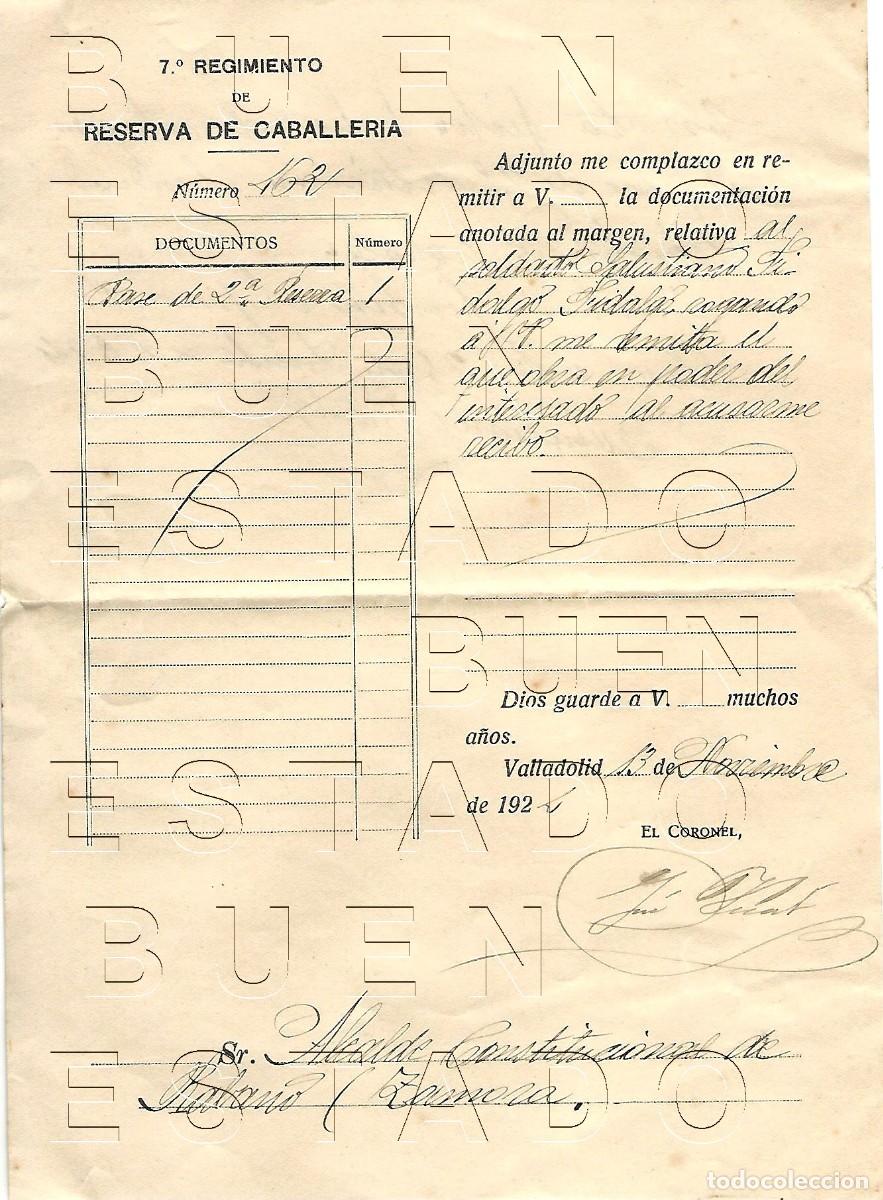 7.º REGIMIENTO
DE
RESERVA DE CABALLERIA
Número 162
DOCUMENTOS Número
Pase de 2ª Reserva 1
Adjunto me complazco en re-
mitir a V. la documentación
anotada al margen, relativa al
soldado Salustiano Fi-
dalgo Fidalgo, rogando
a V. me remita el
que obra en poder del
interesado al acusarme
recibo.
Dios guarde a V. muchos
años.
Valladolid 13 de Noviembre
de 192
EL CORONEL,
José
Sr. Alcalde Constitucional de
Rabano (Zamora.
BUEN
ESTADO
BUEN
ESTADO
BUEN
ESTADO
BUEN
ESTADO
todocoleccion